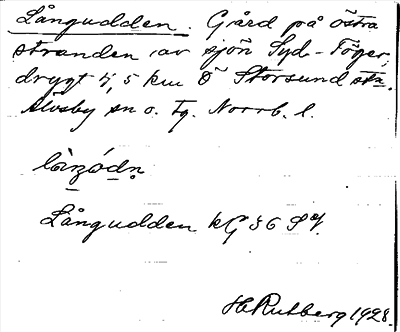 Långudden. Gård på östra
stranden av sjön Syd-Töger,
drygt 4,5 km Ö Storsund stn.
Älvsby sn o. tg. Norrb. l.
Långudden kG 36 SV.
H Rutberg 1928.